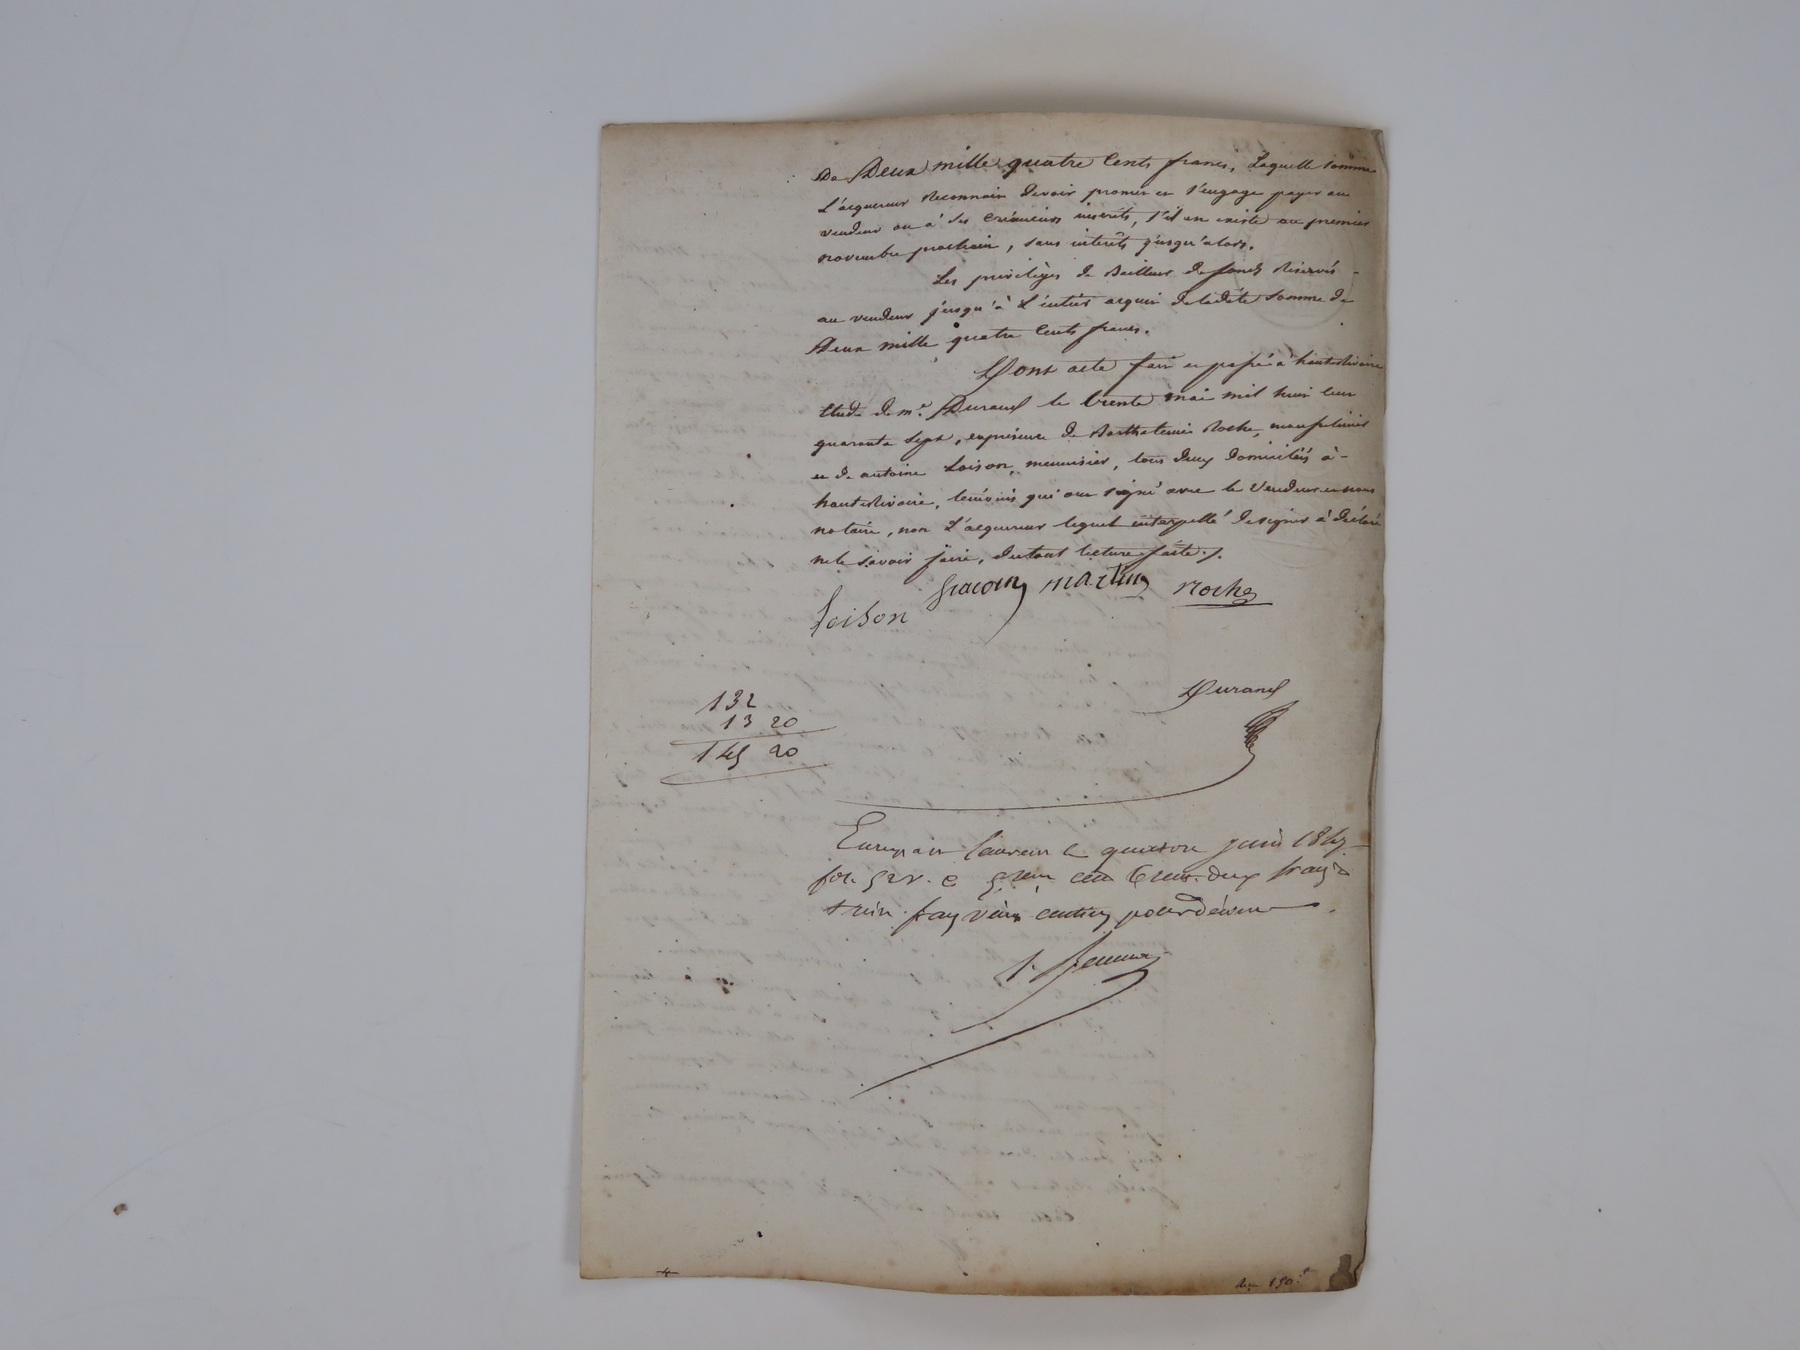 De Deux mille quatre Cents francs, Laquelle somme
L'acquereur Reconnait devoir promet et s'engage payer au
vendeur ou à ses Créanciers inscrits, s'il en existe au premier
novembre prochain, sans intérêts jusqu'alors.
Les privilèges de Bailleur de fonds Réservés
au vendeur jusqu'à L'entier acquit de ladite Somme de
Deux mille quatre Cents francs.
Dont acte fait et passé à hauterivoire
Etude de me. Durand le trente mai mil huit cent
quarante Sept, en présence de Barthelemie Roche,
et de antoine Loison, menuisier, tous deux Domiciliés à
hauterivoire, témoins qui ont signé avec le Vendeur et nous
notaire, non L'acquereur lequel interpellé de signer à déclaré
ne le savoir faire, du tout lecture faite./.
martin Roche
Loison
Durand
132
13 20
145 20
le quatorze juin 1847
fol. 52 v. c cent trente deux francs
treize francs vingt centimes pour décime
4